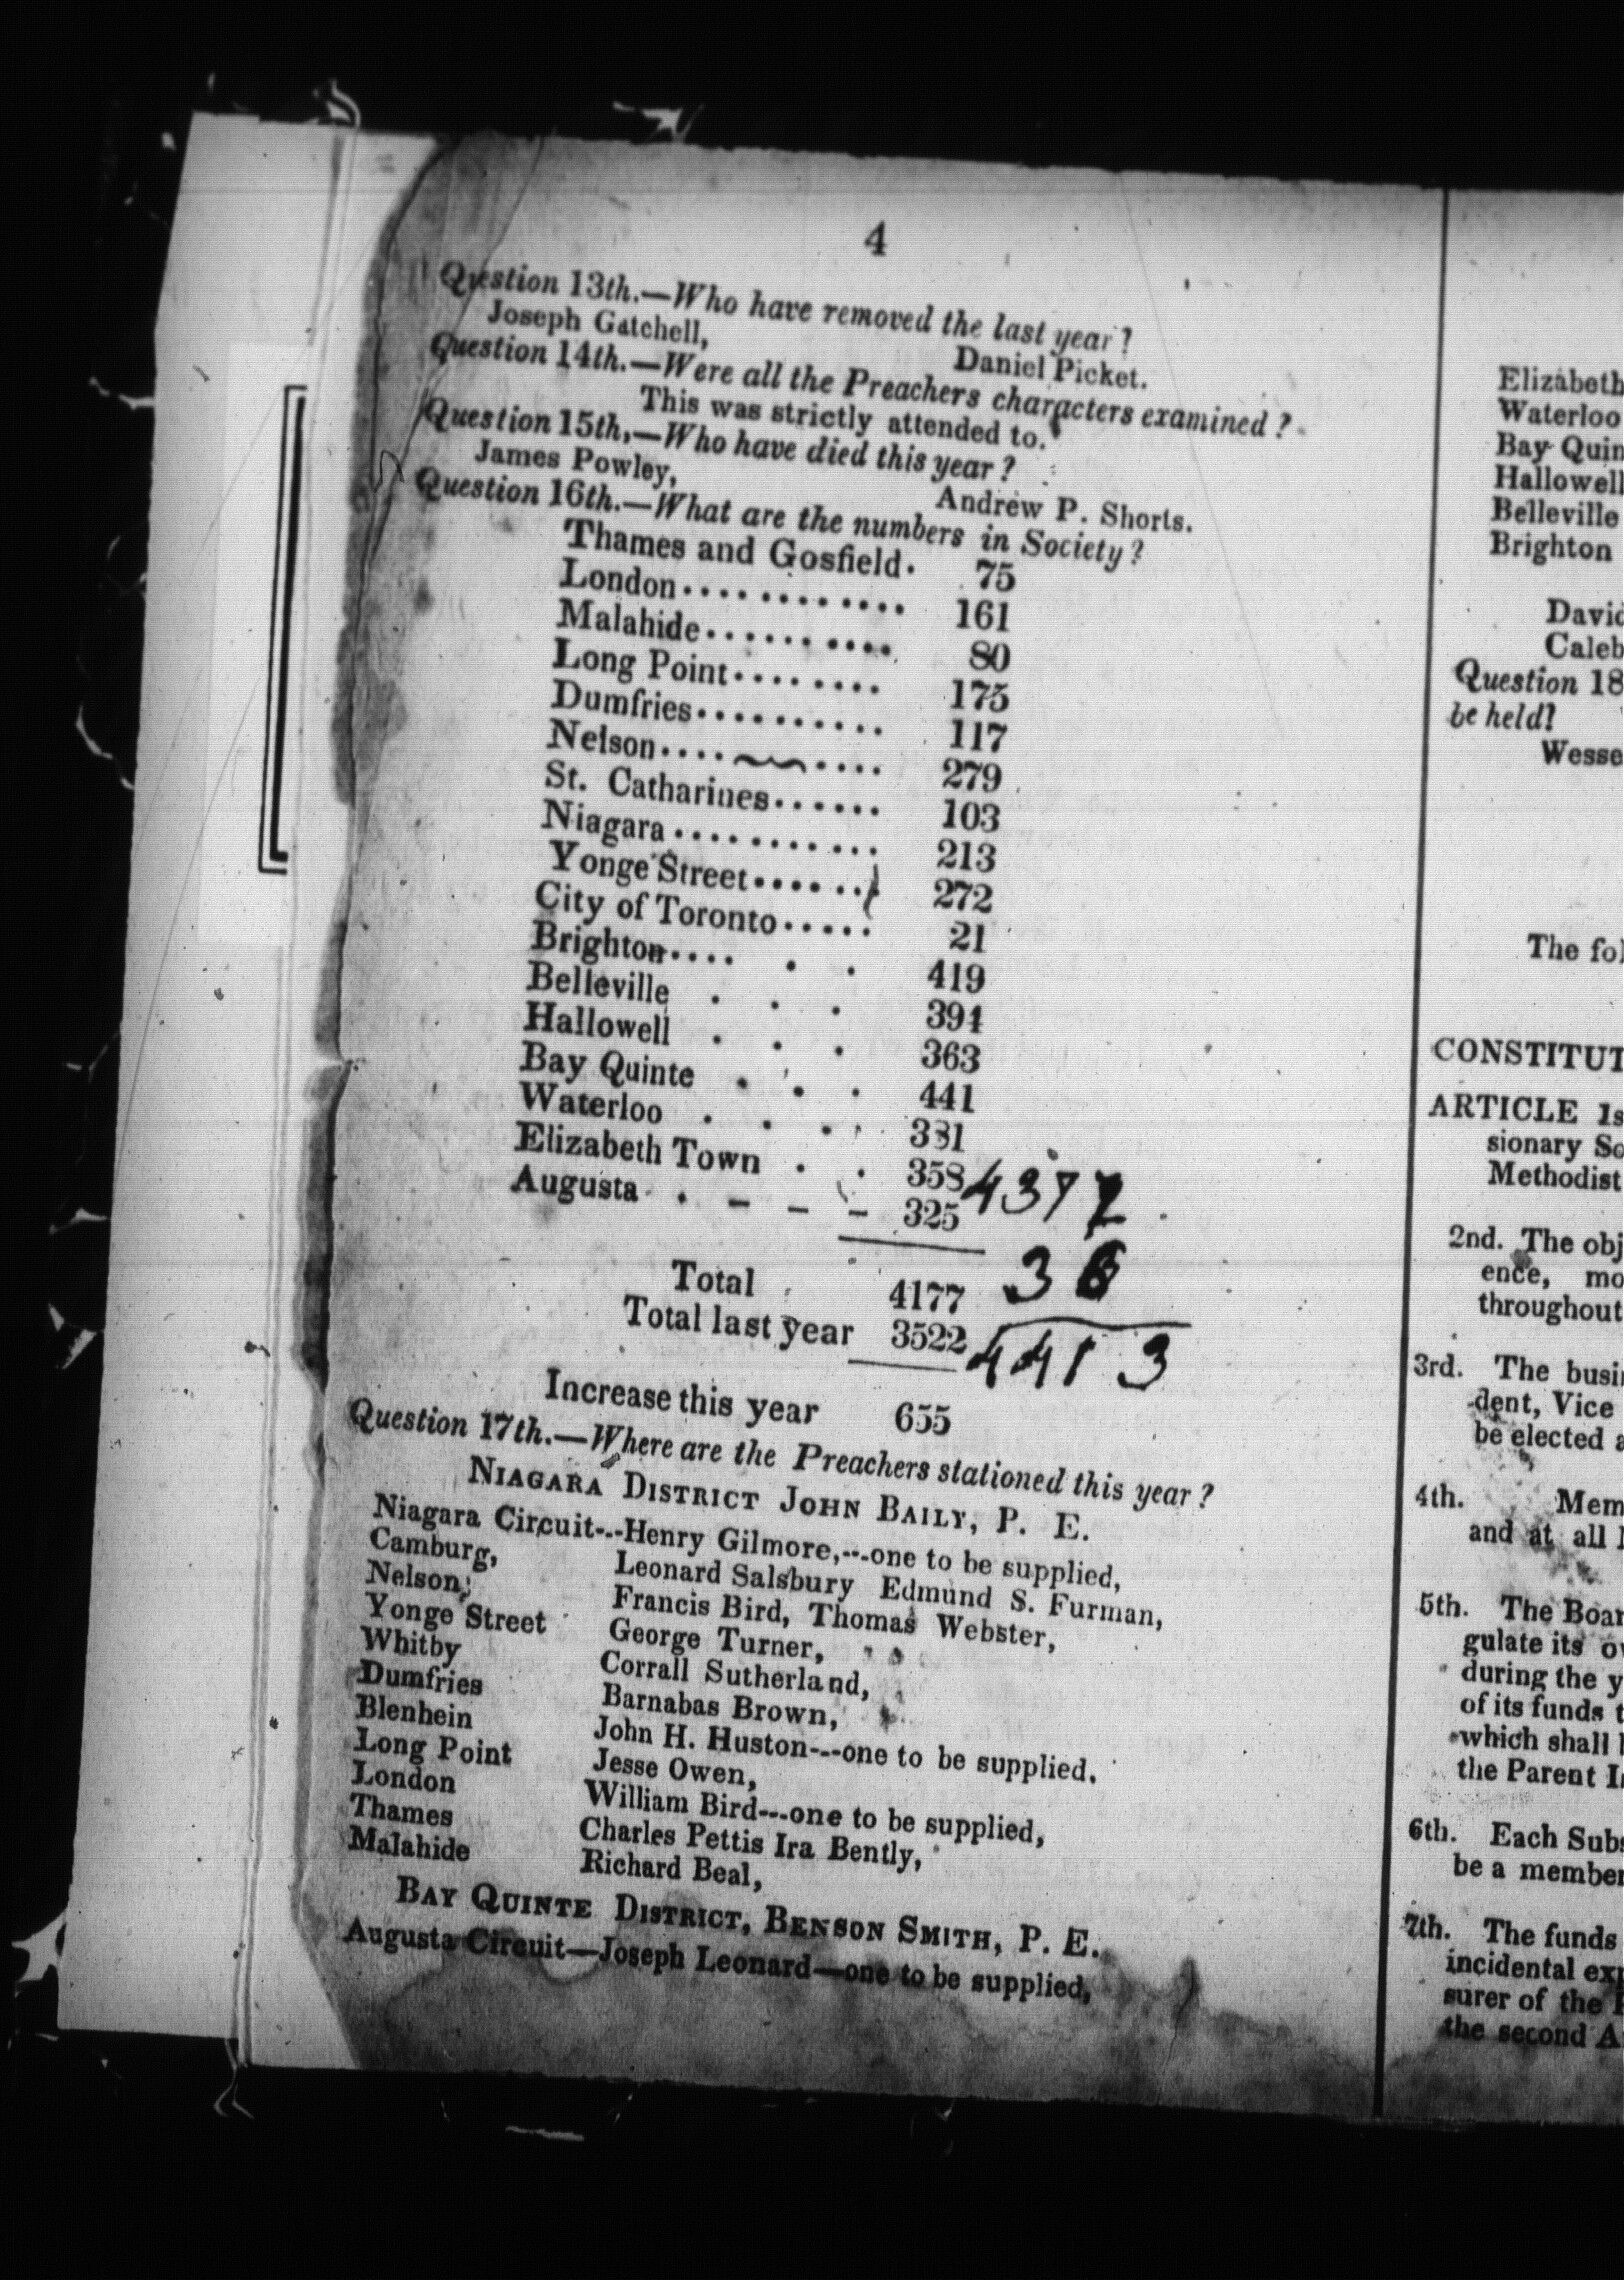 4
Question 13th.—Who have removed the last year?
Joseph Gatchell, Daniel Picket.
Question 14th.—Were all the Preachers characters examined?
This was strictly attended to.
Question 15th,—Who have died this year?
James Powley, Andrew P. Shorts.
Question 16th.—What are the numbers in Society?
Thames and Gosfield. 75
London............ 161
Malahide.......... 80
Long Point........ 175
Dumfries.......... 117
Nelson....~~.... 279
St. Catharines...... 103
Niagara.......... 213
Yonge Street....... 272
City of Toronto..... 21
Brighton.... . . 419
Belleville . . . 394
Hallowell . . . 363
Bay Quinte . . . 441
Waterloo . . . 381
Elizabeth Town . . 358
Augusta . – – – 325
4377
36
4413
Total 4177
Total last year 3522
Increase this year 655
Question 17th.—Where are the Preachers stationed this year?
Niagara District John Baily, P. E.
Niagara Circuit---Henry Gilmore,---one to be supplied,
Camburg, Leonard Salsbury Edmund S. Furman,
Nelson, Francis Bird, Thomas Webster,
Yonge Street George Turner,
Whitby Corrall Sutherland,
Dumfries Barnabas Brown,
Blenhein John H. Huston---one to be supplied.
Long Point Jesse Owen,
London William Bird---one to be supplied,
Thames Charles Pettis Ira Bently,
Malahide Richard Beal,
Bay Quinte District, Benson Smith, P. E.
Augusta Circuit—Joseph Leonard—one to be supplied,
Elizabeth
Waterloo
Bay Quin
Hallowell
Belleville
Brighton
David
Caleb
Question 18
be held?
Wesse
The fol
CONSTITUT
ARTICLE 1s
sionary So
Methodist
2nd. The obj
ence, mo
throughout
3rd. The busi
dent, Vice
be elected a
4th. Mem
and at all
5th. The Boar
gulate its ov
during the y
of its funds t
which shall
the Parent I
6th. Each Subs
be a member
7th. The funds
incidental exp
surer of the
the second A